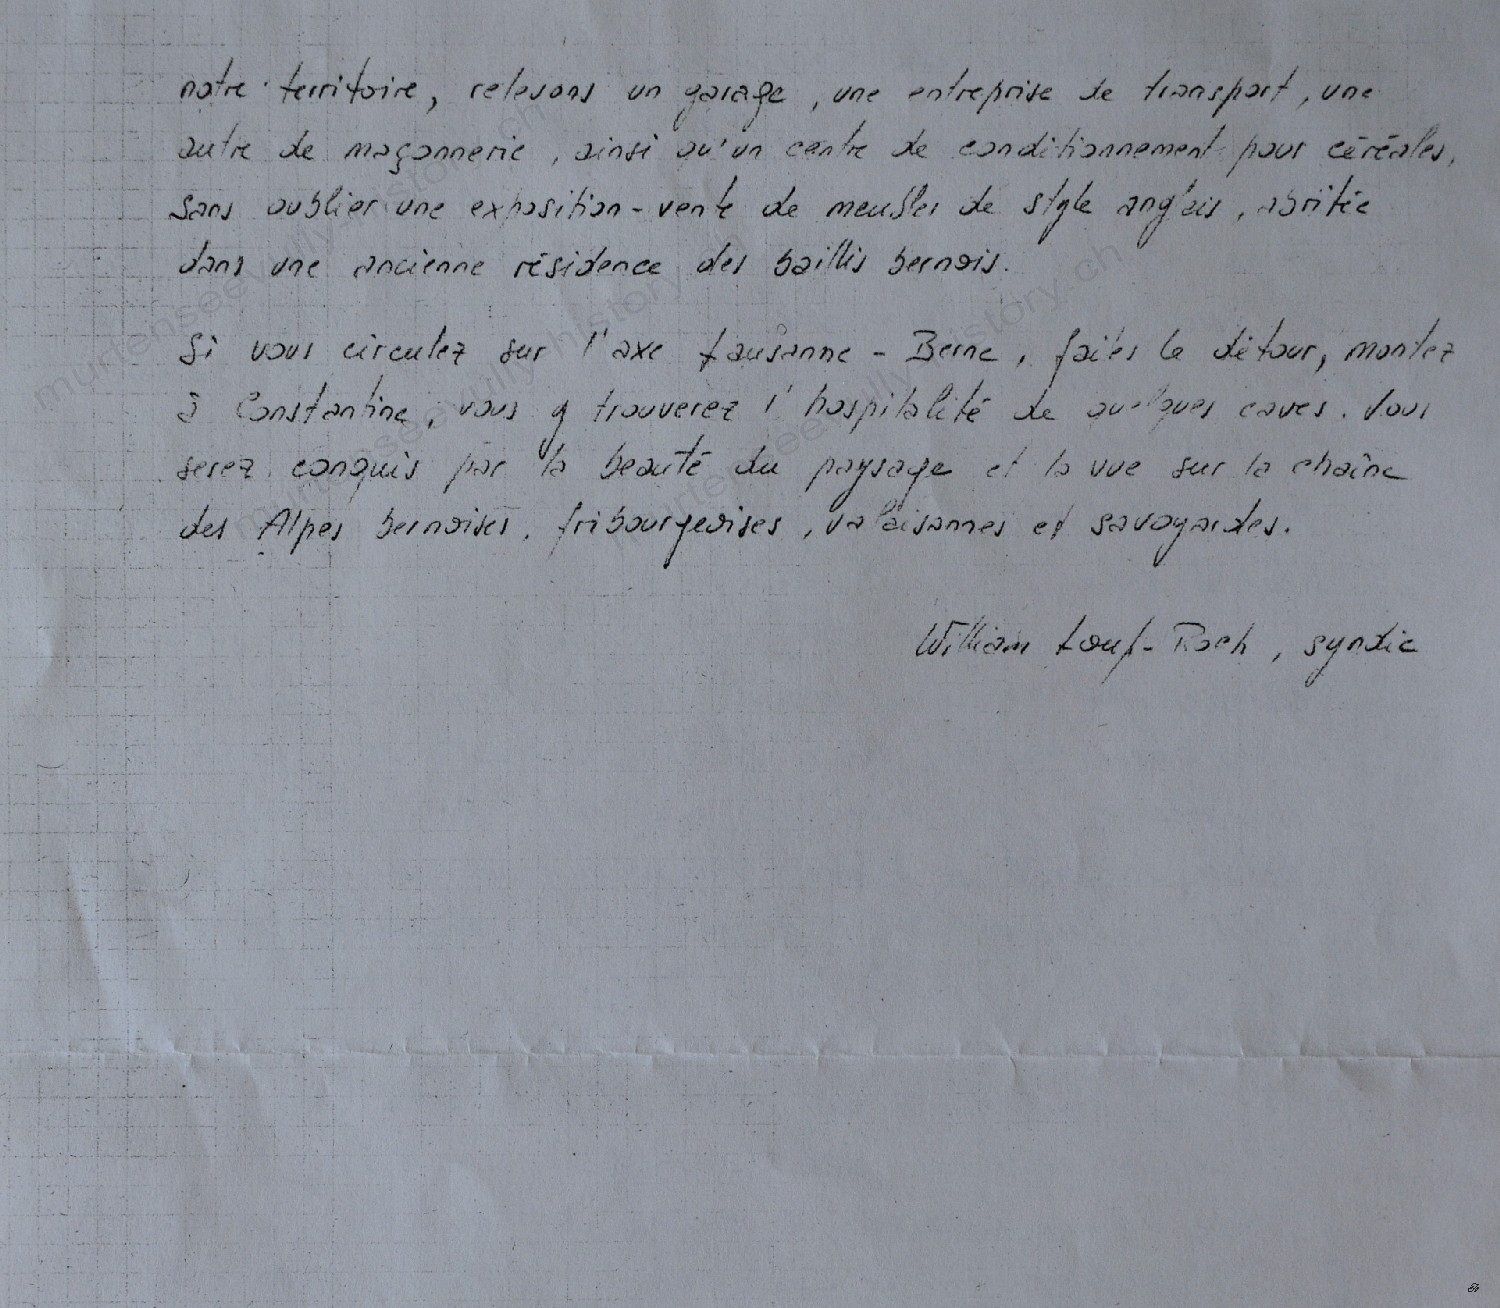 notre territoire, relevons un garage, une entreprise de transport, une
autre de maçonnerie, ainsi qu'un centre de conditionnement pour céréales,
sans oublier une exposition-vente de meubles de style anglais, abritée
dans une ancienne résidence des baillis bernois.
Si vous circulez sur l'axe Lausanne - Berne, faites le détour, montez
à Constantine, vous y trouverez l'hospitalité de quelques caves. Vous
serez conquis par la beauté du paysage et la vue sur la chaîne
des Alpes bernoises, fribourgeoises, valaisannes et savoyardes.
William Loup-Roch, syndic
murtenseevully.history.ch
murtenseevully.history.ch
murtenseevully.history.ch